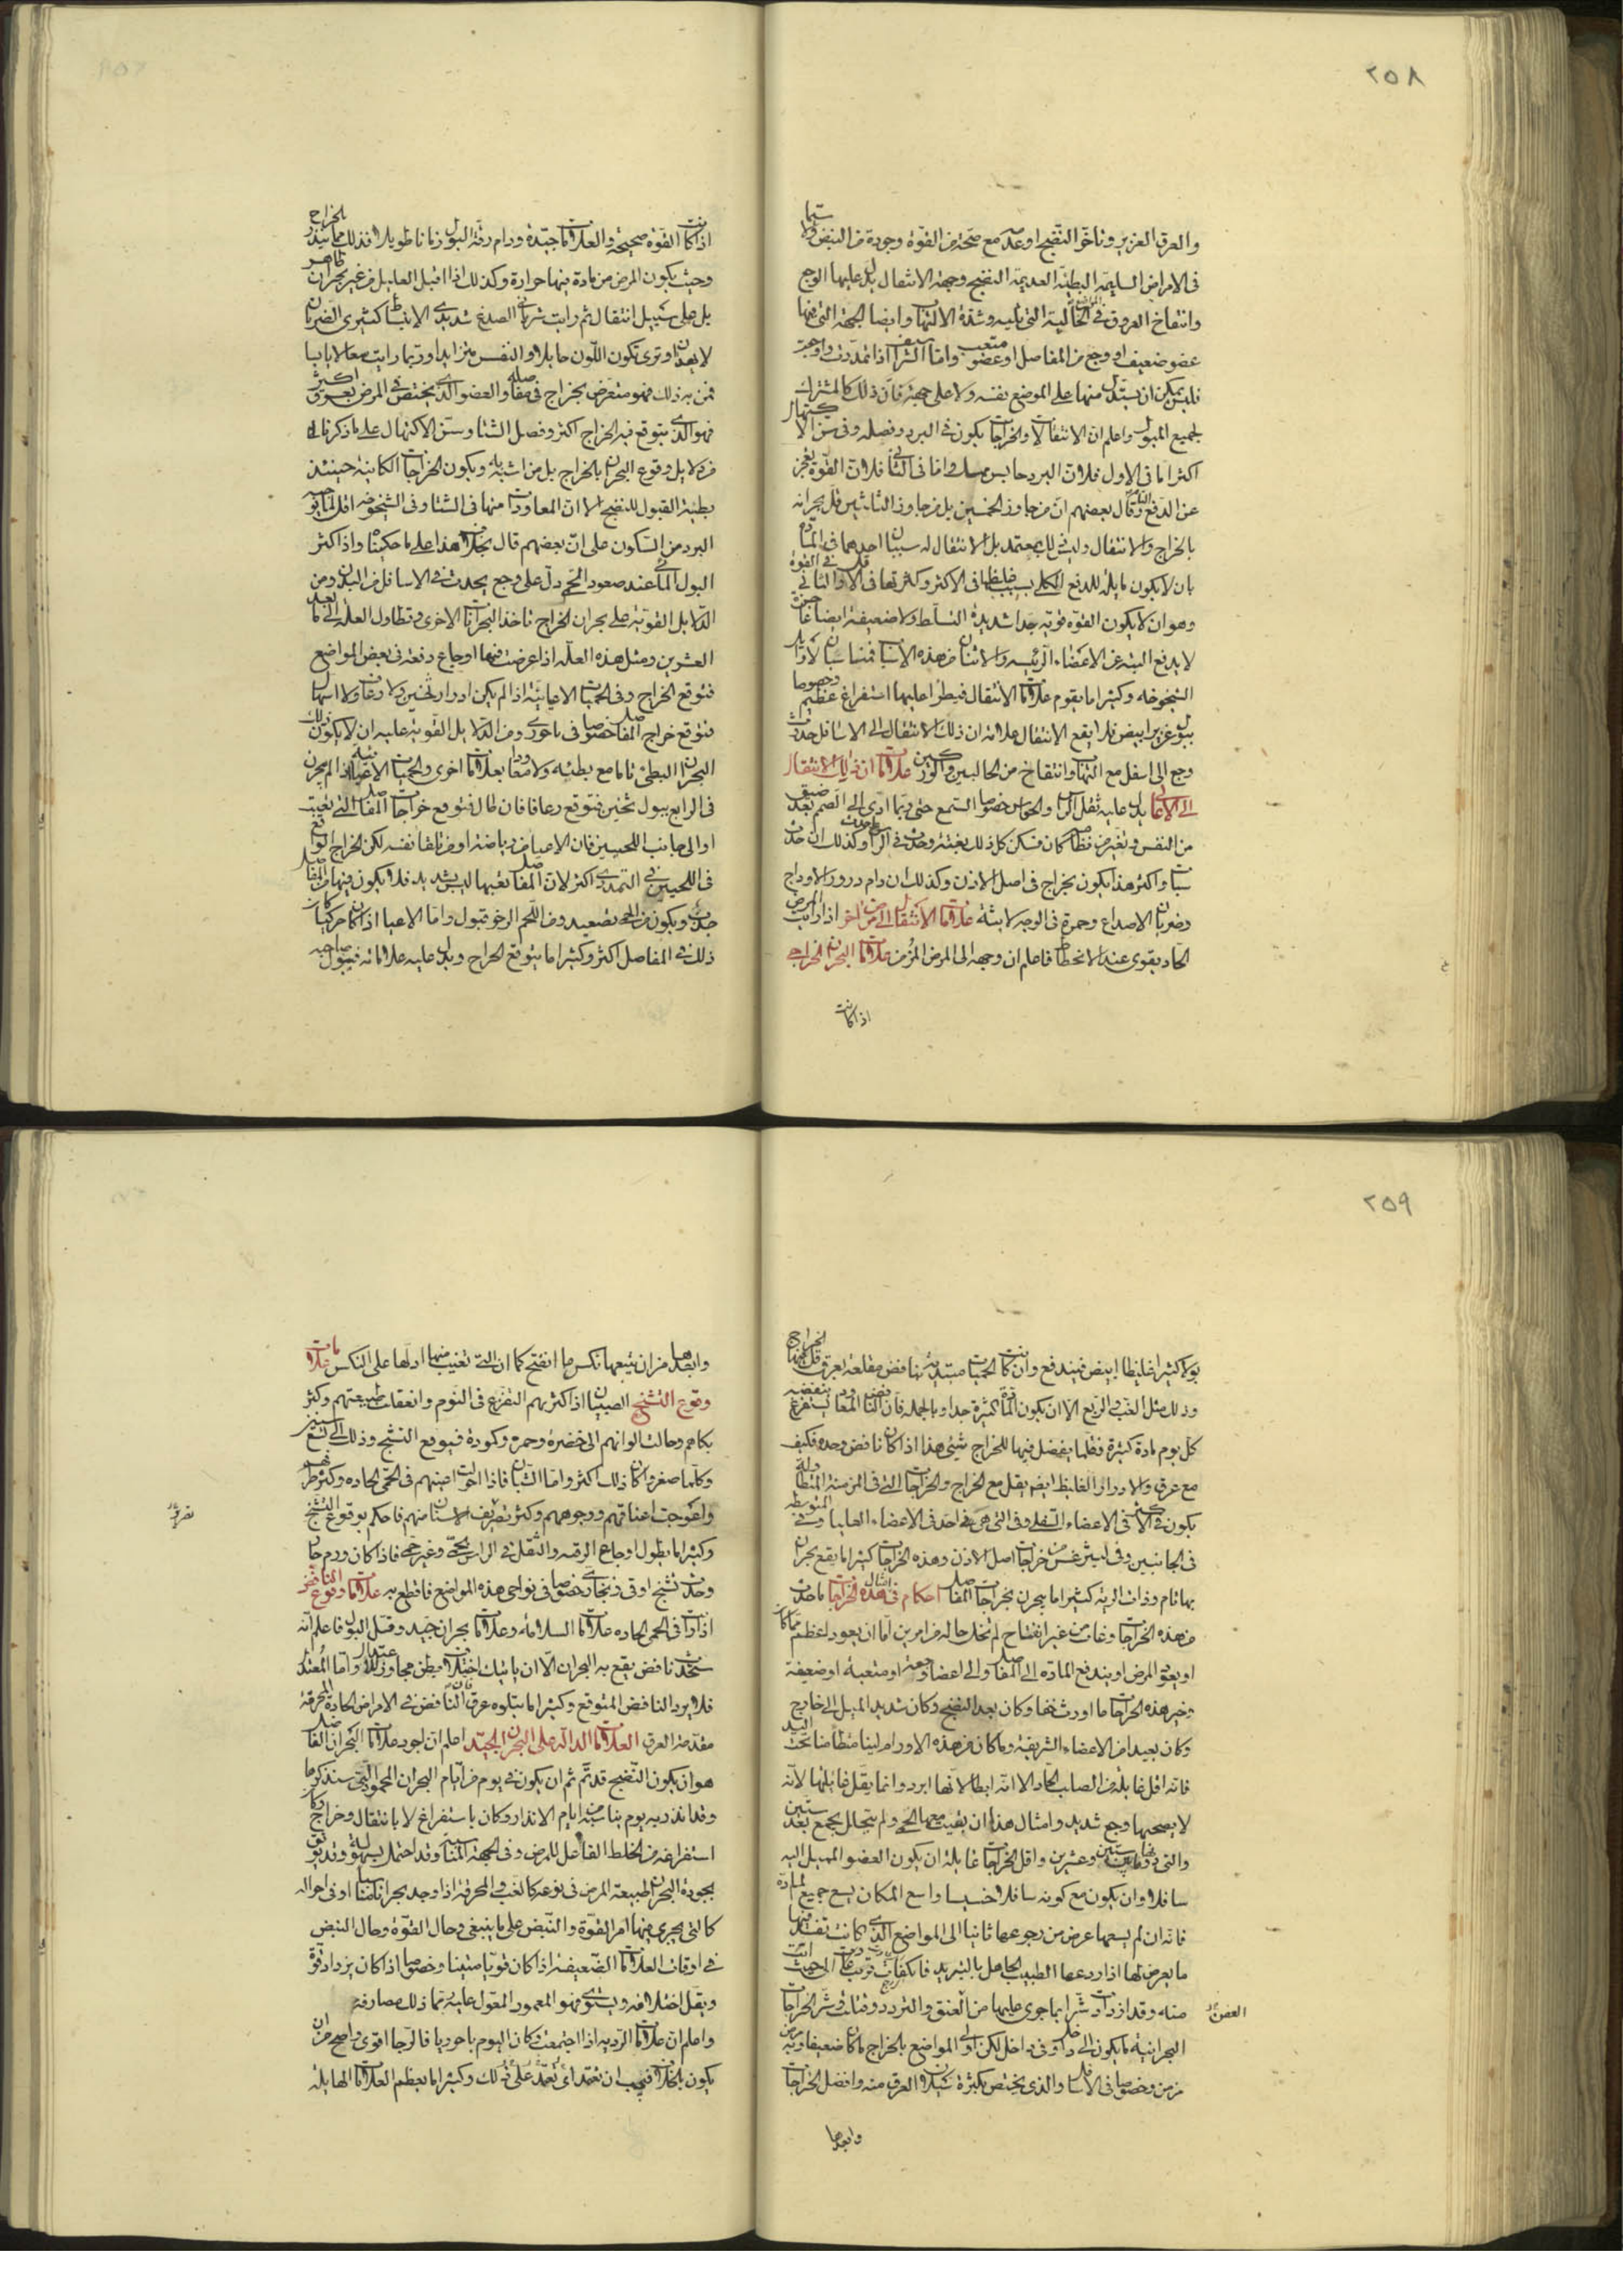 ٢٥٨
والعرق الغزير وتأخر النضج او عدمه مع صحة من القوة وجودة من النبض ولا سيما
فى الامراض السليمة البطيئة العديمة النضج وجهة الانتقال يدل عليها الوجع
وانتفاخ العروق فى الخالية التى تليه وشدة الالتهاب وايضا الجهة التى فيها
عضو ضعيف او وجع من المفاصل او عضو متعب واما الشراسيف اذا تمددت واوجعت
فليس يمكن ان يستدل منها على الموضع نفسه ولا على جهته فان ذلك كالمشترك
لجميع الميول واعلم ان الانتقالات والخراجات يكون فى البرد وفصله وفى سن الاكتهال
اكثر اما فى الاول فلان البرد حابس ممسك واما فى الثانى فلان القوة تعجز
عن الدفع التام وقال بعضهم ان من جاوز الخمسين بل من جاوز الثلثين قل بحرانه
بالخراج والانتقال وليس ذلك بمعتمد بل الانتقال له سببان احدهما فى المادة
بان لا يكون مايلة للدفع الكلى بسبب غلظها فى الاكثر وكثرتها فى الاقل والثانى فى القوة
وهو ان لا يكون القوة قوية جدا شديدة التسلط ولا ضعيفة ايضا عاجزة
لا يدفع البتة عن الاعضاء الرئيسه والاثنان من هذه الاسباب مناسبان لاوايل
الشيخوخه وكثيرا ما يقوم علامات الانتقال فيطرا عليها استفراغ عظيم وخصوصا
ببول غزير ابيض فلا يقع الانتقال علامة ان ذلك الانتقال الى الاسافل حدوث
وجع الى اسفل مع التهاب وانتفاخ من الحالبين والوركين علامات ان ذلك الانتقال
الى الاعالى يدل عليه ثقل الراس والحواس خصوصا السمع حتى ربما ادى الى الصمم بعد ضيق
من النفس وتغير من نظام كان فسكن كل ذلك بغتة وحدث فى الراس ما حدث وكذلك ان حدث
سبات واكثر هذا يكون بخراج فى اصل الاذن وكذلك ان دام درور الاوداج
وضربان الاصداغ وحمرة فى الوجه لابثة علامات الانتقال الى مرض اخر اذا رايت المرض
الحاد يقوى عند الانحطاط فاعلم ان وجهه الى المرض المزمن علامات البحران الخراجى
اذا كانت
اذا كانت القوة صحيحة والعلامات جيدة ودام رقة البول زمانا طويلا فذلك مما ينذر بالخراج
وحيث يكون المرض من مادة فيها حرارة وكذلك اذا اقبل العليل من غير بحران ظاهر
بل على سبيل انتقال ثم رايت شريانى الصدغ شديدى الانبساط كثيرى الضربان
لا يهدان وترى تكون اللون حايلا والنفس متزايدا وربما رايت سعالا يابسا
فمن به ذلك فهو متعرض بخراج فى مفاصله والعضو الذى يختص فى المرض بعرق اكثر
فهو الذى يتوقع فيه الخراج اكثر وفصل الشتا وسن الاكتهال على ما ذكرنا
من دلايل وقوع البحران بالخراج بل من اسبابه ويكون الخراجات الكاينة حينئذ
بطيئة القبول للنضج الا ان المعاودات منها فى الشتا وفى الشيخوخه اقل لما يوجبه
البرد من السكون على ان بعضهم قال بخلاف هذا على ما حكيناه واذا كثر
البول المائى عند صعود الحمى دل على وجع يحدث فى الاسافل من البدن ومن
الدلايل القوية على بحران الخراج تاخر البحرانات الاخرى وتطاول العلة الى ما بعد
العشرين ومثل هذه العلة اذا عرضت فيها اوجاع دفعة فى بعض المواضع
فتوقع الخراج وفى الحميات الاعيائية اذا لم يكن ادرار ثخين ولا رعاف ولا اسهال
فتوقع خراج المفاصل خصوصا فى باحورى ومن الدلايل القوية عليه ان لا يكون ذلك
البحران البطى تاما مع بطئه ولا معاودا بعلامات اخرى والحميات الاعيائية اذا لم يبحرن
فى الرابع ببول ثخين فتوقع رعافا فان طال فتوقع خراجات المفاصل التى تعبت
او الى جانب اللحيين فان الاعيا من رياضة او من تلقا نفسه لكن الخراج الواقع
فى اللحيين فى التمددى اكثر لان المفاصل تعبها ليس بشديد فلا يكون فيها من المفاصل
جذب ويكون من الحمى تصعيد ومن اللحم الرخو قبول واما الاعيا اذا كان حركيا كان
ذلك فى المفاصل اكثر وكثيرا ما يتوقع الخراج ويدل عليه علاماته فيبول صاحبه
٢٥٩
بولا كثيرا غليظا ابيض فيندفع وان كانت الحميات مبتدئة بنافض مقلعة بعرق قل فيها الخراج
وذلك مثل الغب والربع الا ان يكون المادة كثيرة جدا وبالجمله فان النافض المعاود يستفرغ بنفضه
كل يوم مادة كبيرة فقلما يفضل فيها للخراج شىء هذا اذا كان نافض وحده فكيف
مع عرق والادرار الغليظ ايضا يقل مع الخراج والخراجات التى فى المزمنة المتطاولة
يكون فى الاكثر فى الاعضاء السفلى وفى التى هى احد فى الاعضاء العليا وفى المتوسطه
فى الجانبين وفى ليثرغس من خراجات اصل الاذن وهذه الخراجات كثيرا ما يقع بحران
بها تام وذات الرية كثيرا ما يبحرن بخراجات المفاصل احكام فى امثال هذه الخراجات ما حدث
من هذه الخراجات وغاب من غير انفتاح لم تخل حاله من امرين اما ان يعود اعظم مما كان
او يعود المرض او يندفع المادة الى المفاصل والى اعضا وجعة او متعبة او ضعيفة
وخير هذه الخراجات ما اورث خفا وكان بعد النضج وكان شديد الميل الى خارج
وكان بعيدا من الاعضاء الشريفة وما كان من هذه الاورام لينا متطامنا تحت اليد
فانه اقل غايلة من الصلب الحاد الا انه ابطا لانها ابرد وانما يقل غايلتها لانه
لا يصحبها وجع شديد وامثال هذا ان بقيت معها الحمى ولم يتحلل يجمع بعد ستين
والتى دونها بين ستين وعشرين واقل الخراجات غايلة ان يكون العضو المميل اليه
سافلا وان يكون مع كونه سافلا خسيسا واسع المكان يسع جميع المادة
فانه ان لم يسعها عرض من رجوعها ثانيا الى المواضع التى كانت تنفذ فيها
ما يعرض لها اذا ردعها الطبيب الجاهل بالتبريد فانكفات
منه وقد ازدادت شرا بما جرى عليها من العفن والتردد وقتلت وشر الخراجات
البحرانية ما يكون الى داخل او فى داخل لكن اولى المواضع بالخراج ما كان ضعيفا وبه مرض
مزمن وخصوصا فى الاسافل والذى يختص بكثرة سيلان العرق منه وافضل الخراجات
وابعدها
العفن
وابعدها من ان يتبعها نكس ما انفتح كما ان التى تغيب منها ادلها على النكس علامات
وقوع التشنج الصبيان اذا كثر بهم التفزع فى النوم وانعقلت طبيعتهم وكثر
بكاهم وحالت الوانهم الى خضرة وحمرة وكمودة فتوقع التشنج وذلك الى تسع سنين
وكلما صغروا كان ذلك اكثر واما الشبان فاذا احولت اعينهم فى الحمى الحاده وكثر طرفهم
واعوجت اعناقهم ووجوههم وكثر تصريف الاسنان منهم فاحكم بوقوع التشنج
وكثيرا ما يطول اوجاع الرقبه والثقل فى الراس بحمى وغير حمى فاذا كان ورم حار
وحدث تشنج خصوصا فى نواحى هذه المواضع فاقطع به علامات وقوع النافض
اذا رايت فى الحمى الحاده علامات السلامة وعلامات بحران جيد وقل البول فاعلم انه
سيحدث نافض يقع به البحران الا ان ياتيك اختلاف بطن مجاوز للاعتدال واما المعتدل
فلا يرد النافض المتوقع وكثيرا ما يتلوه عرق فان النافض فى الامراض الحادة المحرقة
مقدمة العرق العلامات الدالة على البحران الجيد اعلم ان اجود علامات البحران الفاضل
هو ان يكون النضج قد تم ثم ان يكون فى يوم من ايام البحران المحمودة التى سنذكرها
وقد انذر به يوم يناسبه من ايام الانذار وكان باستفراغ لا بانتقال وخراج وكان
استفراغه من الخلط الفاعل للمرض وفى الجهة المناسبة وقد احتمل بسهولة وقد يوثق
بجودة البحران طبيعة المرض فى نوعه كالغب والمحرقة اذا وجد بحرانا مناسبا او فى احواله
كالتى يجرى فيها امر القوة والنبض على ما ينبغى وحال القوة وحال النبض
فى اوقات العلامات الضعيفة اذا كان قويا متينا وخصوصا اذا كان يزداد قوة
ويقل اختلافه ويستوى فهو المعمود المعول عليه
واعلم ان علامات الرديه اذا اجتمعت وكان اليوم باحوريا فالرجا اقوى واصح من ان
يكون بالخلاف فيجب ان تعتمد على ذلك وكثيرا ما يعظم العلامات الهايلة